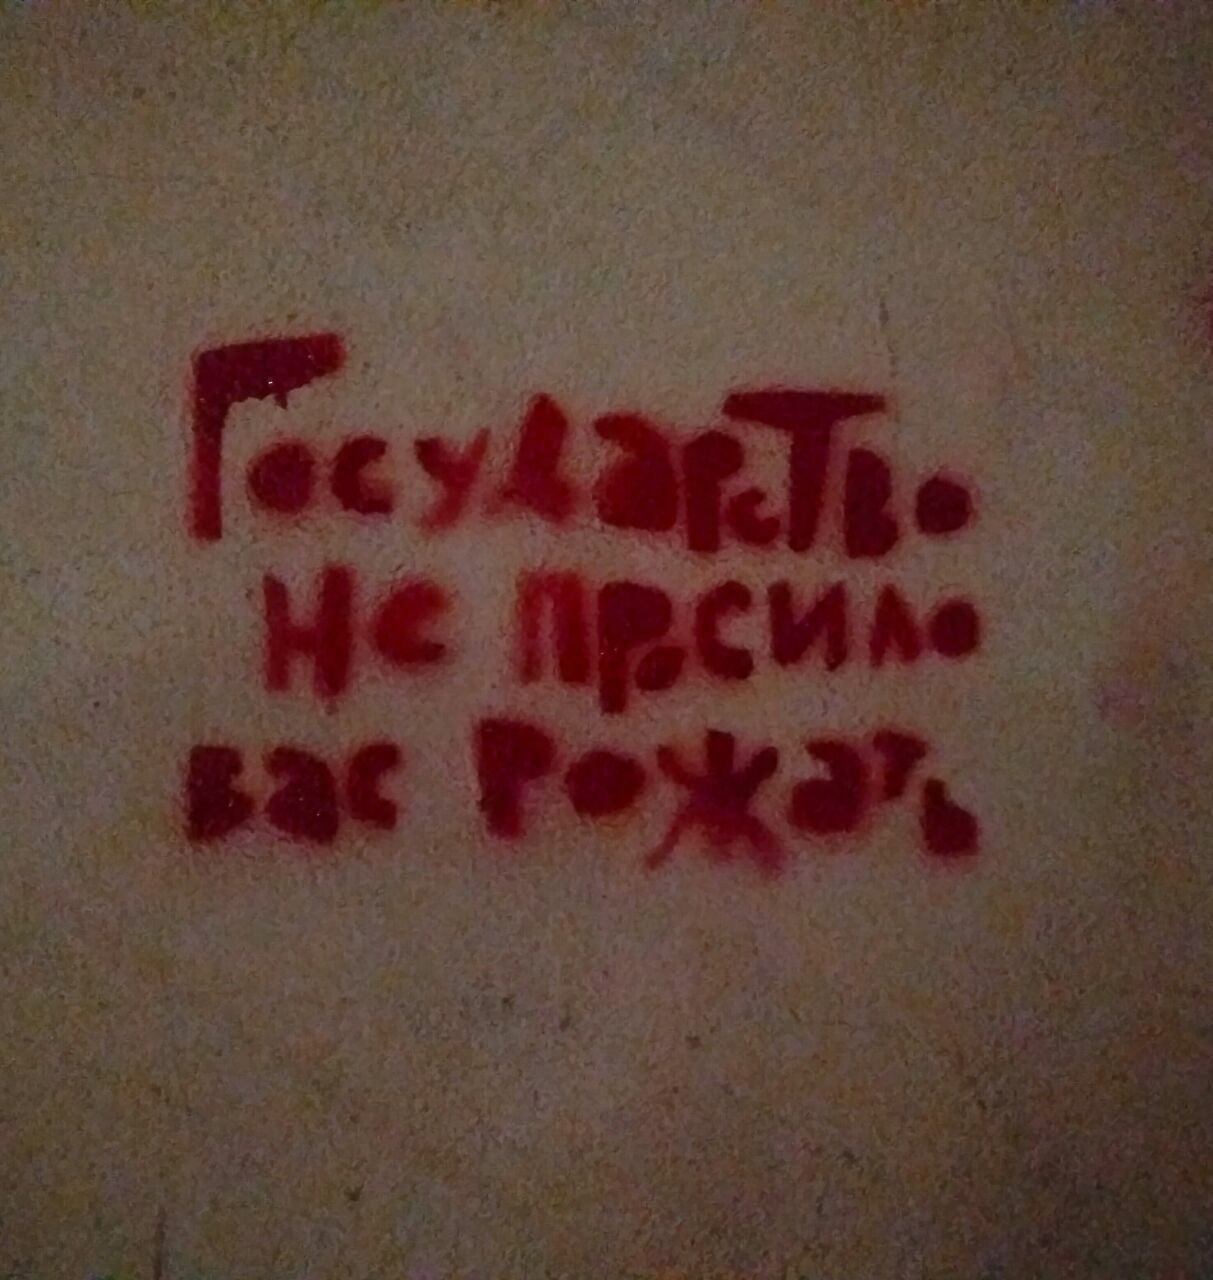 Государство
не просило
вас рожать